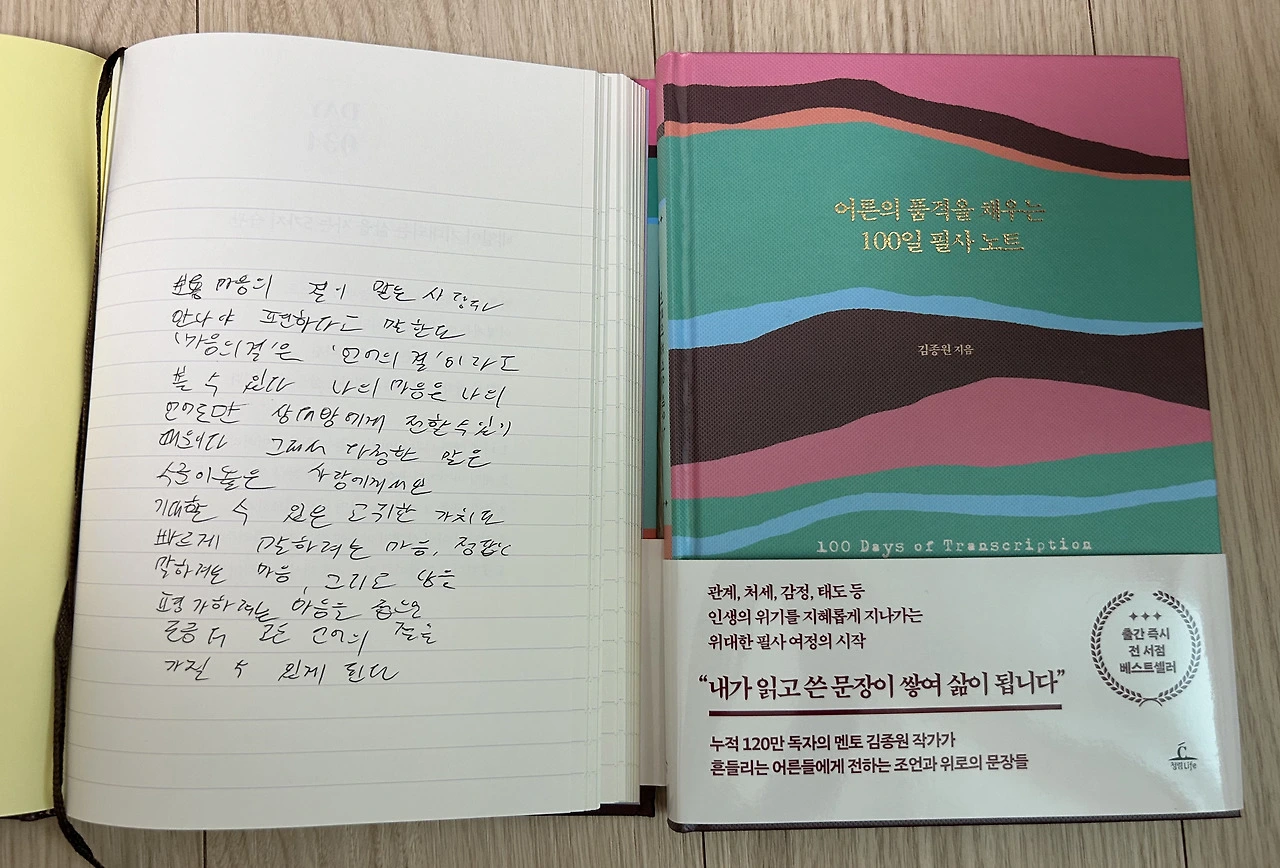 보통 마음의 결이 맞는 사람과
만나야 편하다고 말한다
'마음의 결'은 '언어의 결'이라도
볼 수 있다 나의 마음은 나의
언어로만 상대방에게 전할 수 있기
때문이다 그래서 다정한 말은
수준이 높은 사람에게서만
기대할 수 있는 고귀한 가치도
빠르게 말하려는 마음, 정답만
말하려는 마음, 그리고 남을
평가하려는 마음을
조금 더 언어의 결을
가질 수 있게 된다
어른의 품격을 채우는
100일 필사 노트
김종원 지음
100 Days of Transcription
관계, 처세, 감정, 태도 등
인생의 위기를 지혜롭게 지나가는
위대한 필사 여정의 시작
"내가 읽고 쓴 문장이 쌓여 삶이 됩니다"
누적 120만 독자의 멘토 김종원 작가가
흔들리는 어른들에게 전하는 조언과 위로의 문장들
출간 즉시
전 서점
베스트셀러
청림Life